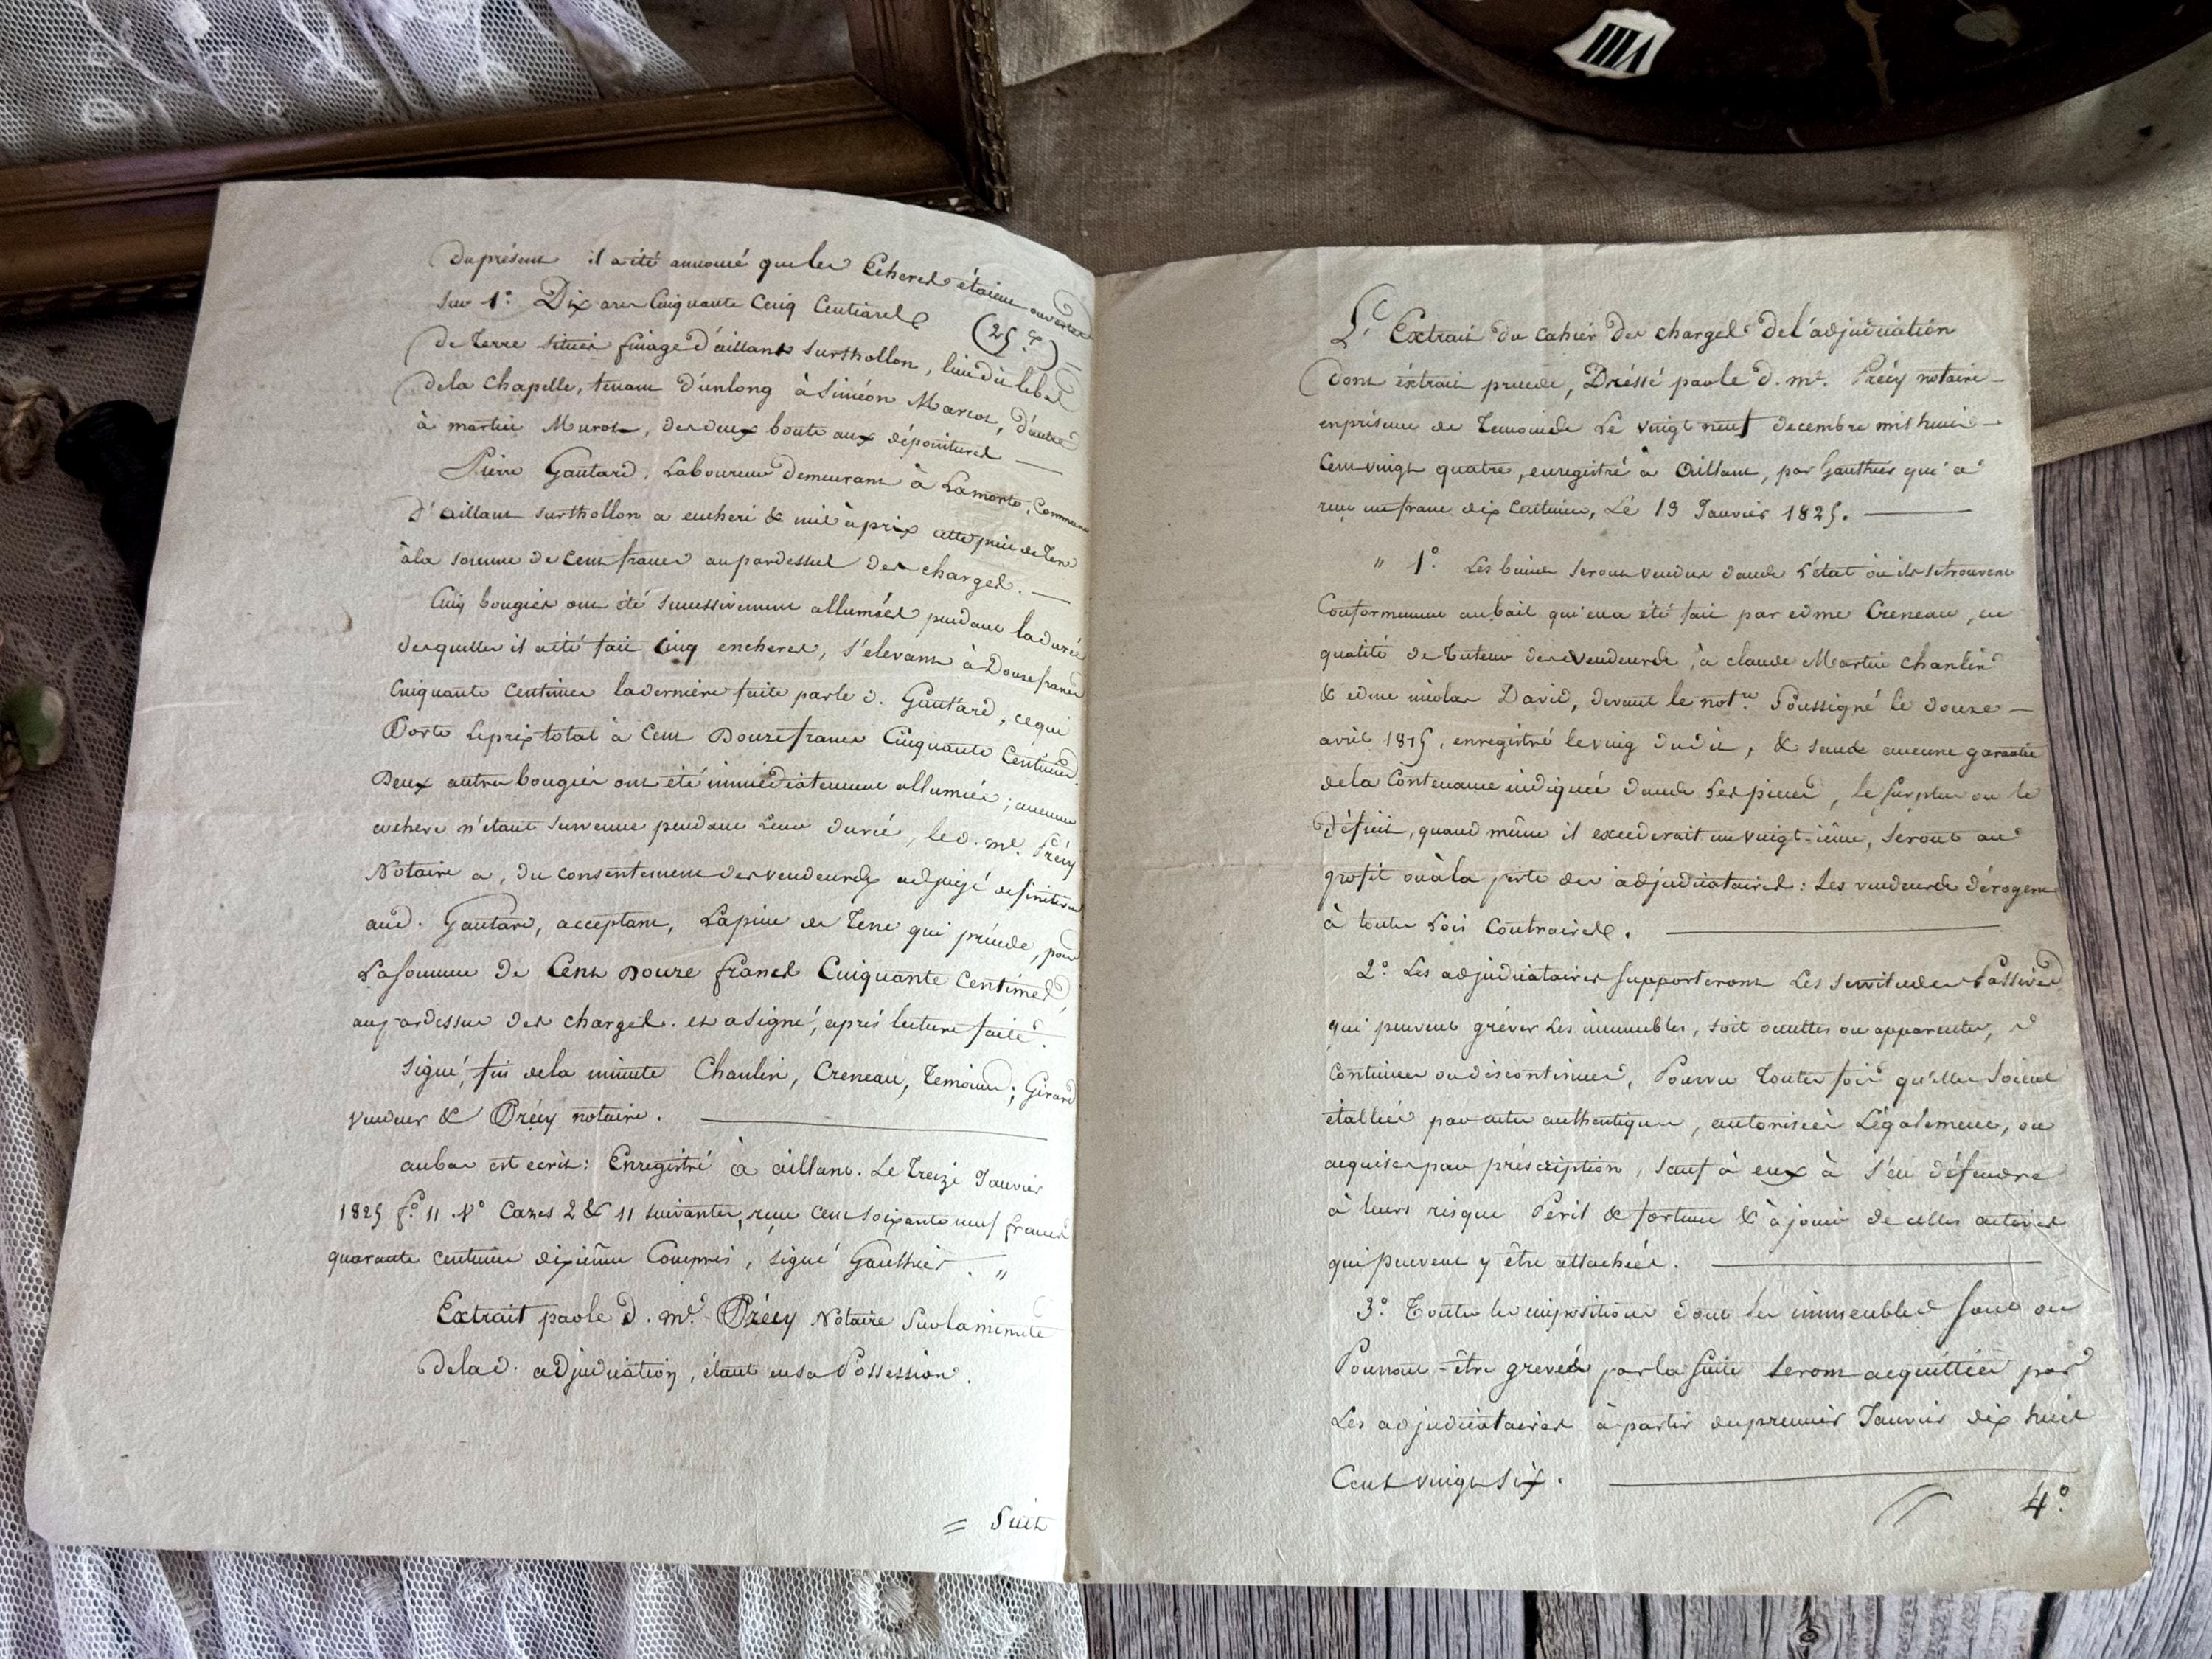 du présent il a été annoncé que les Echeres étaient ouvertes
sur 1.° Dix ares Cinquante Cinq Centiares
(25.
de Terre située finage d'aillant surthollon, lieu dit le bas
de la Chapelle, tenant d'un long à Siméon Marcot, d'autre
à martin Murot, des deux bouts aux dépointures
Pierre Gautard, Laboureur demeurant à Lamotte, Commune
D'aillant surthollon a encheri & mis à prix cette piece de Terre
à la somme de cent francs aupardessus des charges.
Cinq bougies ont été successivement allumées pendant la durée
desquelles il a été fait Cinq encheres, s'élevant à Douze francs
Cinquante Centimes la dernière faite par le d. Gautard, ce qui
Porte le prix total à Cent Douze francs Cinquante Centimes
Deux autres bougies ont été immédiatement allumées; aucune
enchere n'étant survenue pendant leur durée, le d. me. Précy
Notaire a, du consentement des vendeurs, adjugé définitivem
aud. Gautard, acceptant, La piece de Terre qui précède, pour
La somme de Cent Douze francs Cinquante Centimes,
aupardessus des charges. et a signé, après lecture faite.
Signé, fin de la minute Chanlin, Creneau, Temoins; Girard
vendeur & Précy notaire.
au bas est ecrit: Enregistré à aillant. Le Treize Janvier
1825 f.° 11 .V° Cazes 2 & 11 suivantes, reçu cent soixante neuf francs
quarante centimes dixième Compris, signé Gauthier. "
Extrait par le d. me. Précy Notaire Sur la minute
de la d. adjudication, étant en sa Possession.
= Suit
L.° Extrait du Cahier des charges de l'adjudication
dont éxtrait precede, Dréssé par le d. me. Précy notaire
en présence de Temoins Le vingt neuf decembre mil huit
Cent vingt quatre, enregistré à Aillant, par Gauthier qui a
reçu un franc dix Centimes, Le 13 Janvier 1825.
" 1.° Les biens seront vendus dans L'état où ils se trouvent
Conformement au bail qui en a été fait par edme Creneau, en
qualité de Tuteur des vendeurs, à claude Martin Chanlin
& edme nicolas David, devant le not.re Soussigné le douze
avril 1815, enregistré le vingt dudit, & sans aucune garantie
de la Contenance indiquée dans Les pieces, le surplus ou le
Déficit, quand même il excéderait un vingt-ième, seront au
profit ou à la perte des adjudicataires: Les vendeurs dérogent
à toutes Lois Contraires.
2.° Les adjudicataires supporteront Les servitudes Passives
qui peuvent gréver Les immeubles, soit occultes ou apparentes,
Continues ou discontinues, Pourvu Toutes fois qu'elles soient
établies par actes authentiques, autorisées Légalement, ou
acquises par préscription, sauf à eux à s'en défendre
à leurs risque Péril & fortune & à jouir de celles actives
qui peuvent y être attachées.
3.° Toutes les impositions dont les immeubles sont ou
Pourront-être grevés par la suite seront acquittées par
Les adjudicataires à partir du premier Janvier dix huit
Cent vingt six.
4.°
VIII